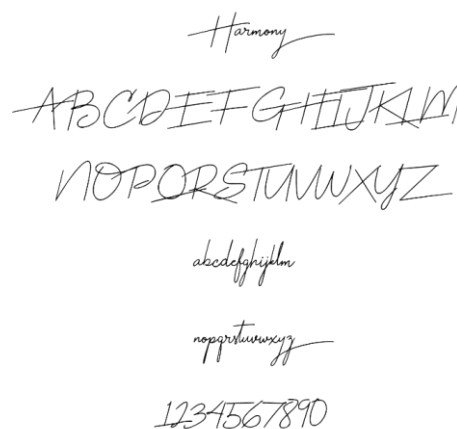 Harmony
ABCDEFGHIJKLM
NOPQRSTUVWXYZ
abcdefghijklm
nopqrstuvwxyz
1234567890